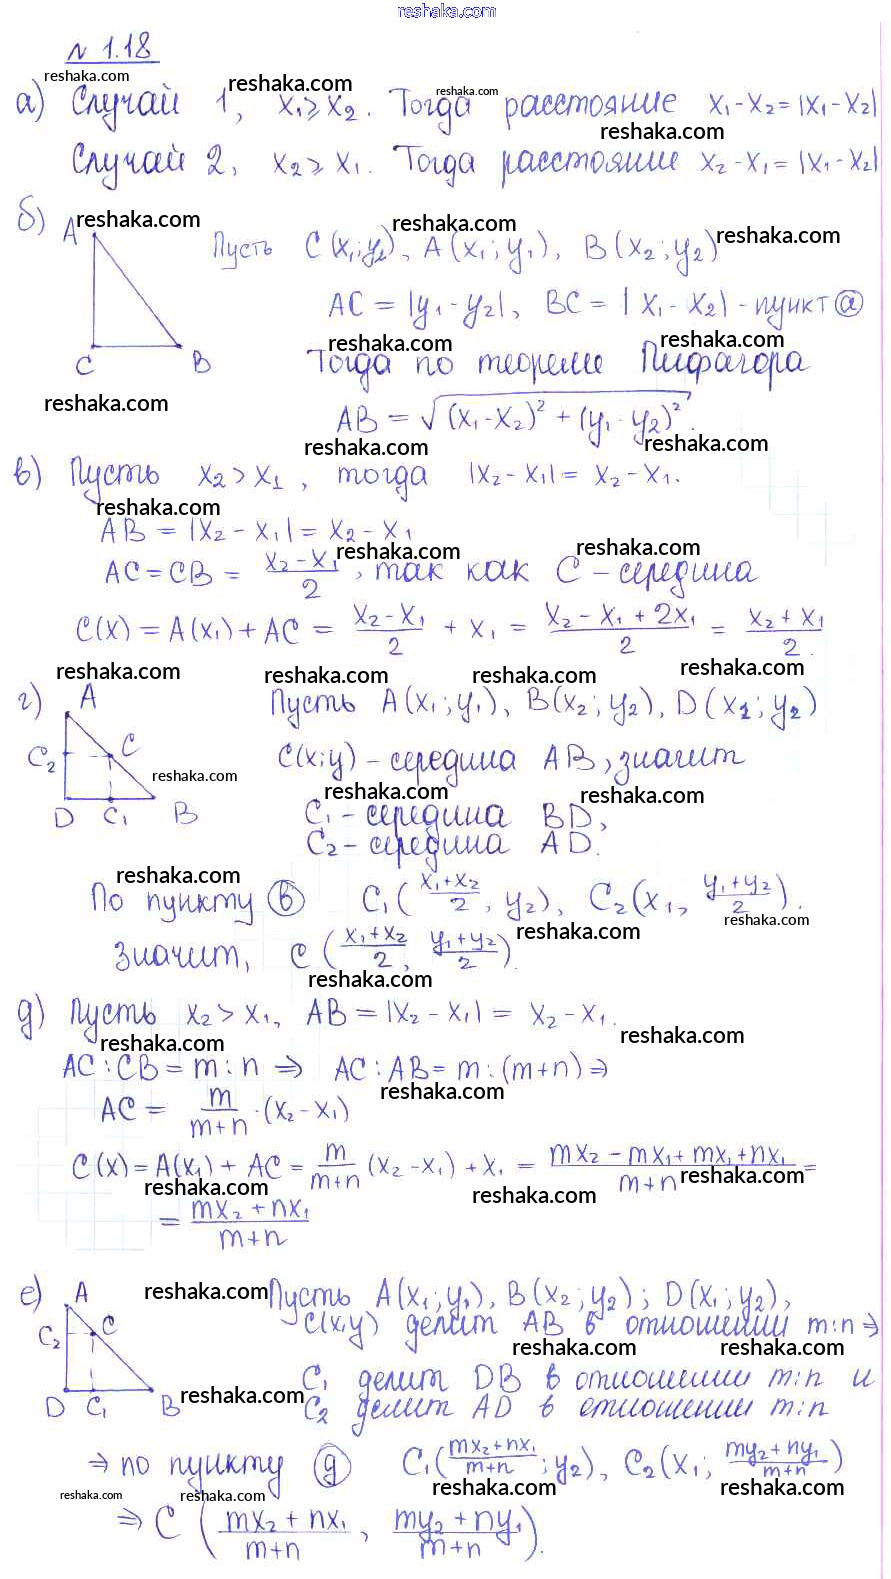 reshaka.com
№ 1.18
reshaka.com
а) Случай 1, x₁ ≥ x₂. Тогда расстояние x₁ - x₂ = |x₁ - x₂|
reshaka.com reshaka.com
reshaka.com
Случай 2, x₂ ≥ x₁. Тогда расстояние x₂ - x₁ = |x₁ - x₂|
reshaka.com reshaka.com reshaka.com
б) A Пусть C(x₁; y₂), A(x₁; y₁), B(x₂; y₂)
AC = |y₁ - y₂|, BC = |x₁ - x₂| - пункт а
reshaka.com reshaka.com
C B Тогда по теореме Пифагора
reshaka.com
AB = √((x₁ - x₂)² + (y₁ - y₂)²).
reshaka.com reshaka.com
в) Пусть x₂ > x₁, тогда |x₂ - x₁| = x₂ - x₁.
reshaka.com
AB = |x₂ - x₁| = x₂ - x₁
reshaka.com reshaka.com
AC = CB = (x₂ - x₁)/2, так как C - середина
C(x) = A(x₁) + AC = (x₂ - x₁)/2 + x₁ = (x₂ - x₁ + 2x₁)/2 = (x₂ + x₁)/2.
reshaka.com reshaka.com reshaka.com reshaka.com
г) A Пусть A(x₁; y₁), B(x₂; y₂), D(x₁; y₂)
C₂ C C(x; y) - середина AB, значит
reshaka.com reshaka.com reshaka.com
D C₁ B C₁ - середина BD,
C₂ - середина AD.
reshaka.com
По пункту в C₁((x₁+x₂)/2, y₂), C₂(x₁, (y₁+y₂)/2).
reshaka.com
reshaka.com
Значит, C((x₁+x₂)/2, (y₁+y₂)/2).
reshaka.com
д) Пусть x₂ > x₁, AB = |x₂ - x₁| = x₂ - x₁.
reshaka.com reshaka.com
AC : CB = m : n ⇒ AC : AB = m : (m+n) ⇒
reshaka.com
AC = m/(m+n) · (x₂ - x₁)
C(x) = A(x₁) + AC = m/(m+n) (x₂ - x₁) + x₁ = (mx₂ - mx₁ + mx₁ + nx₁)/(m+n) =
reshaka.com reshaka.com reshaka.com
= (mx₂ + nx₁)/(m+n)
reshaka.com
е) A Пусть A(x₁; y₁), B(x₂; y₂); D(x₁; y₂),
C₂ C C(x; y) делит AB в отношении m:n ⇒
reshaka.com reshaka.com
C₁ делит DB в отношении m:n и
reshaka.com
D C₁ B C₂ делит AD в отношении m:n
⇒ по пункту д C₁((mx₂+nx₁)/(m+n); y₂), C₂(x₁; (my₂+ny₁)/(m+n))
reshaka.com reshaka.com reshaka.com reshaka.com
⇒ C((mx₂ + nx₁)/(m+n), (my₂ + ny₁)/(m+n)).